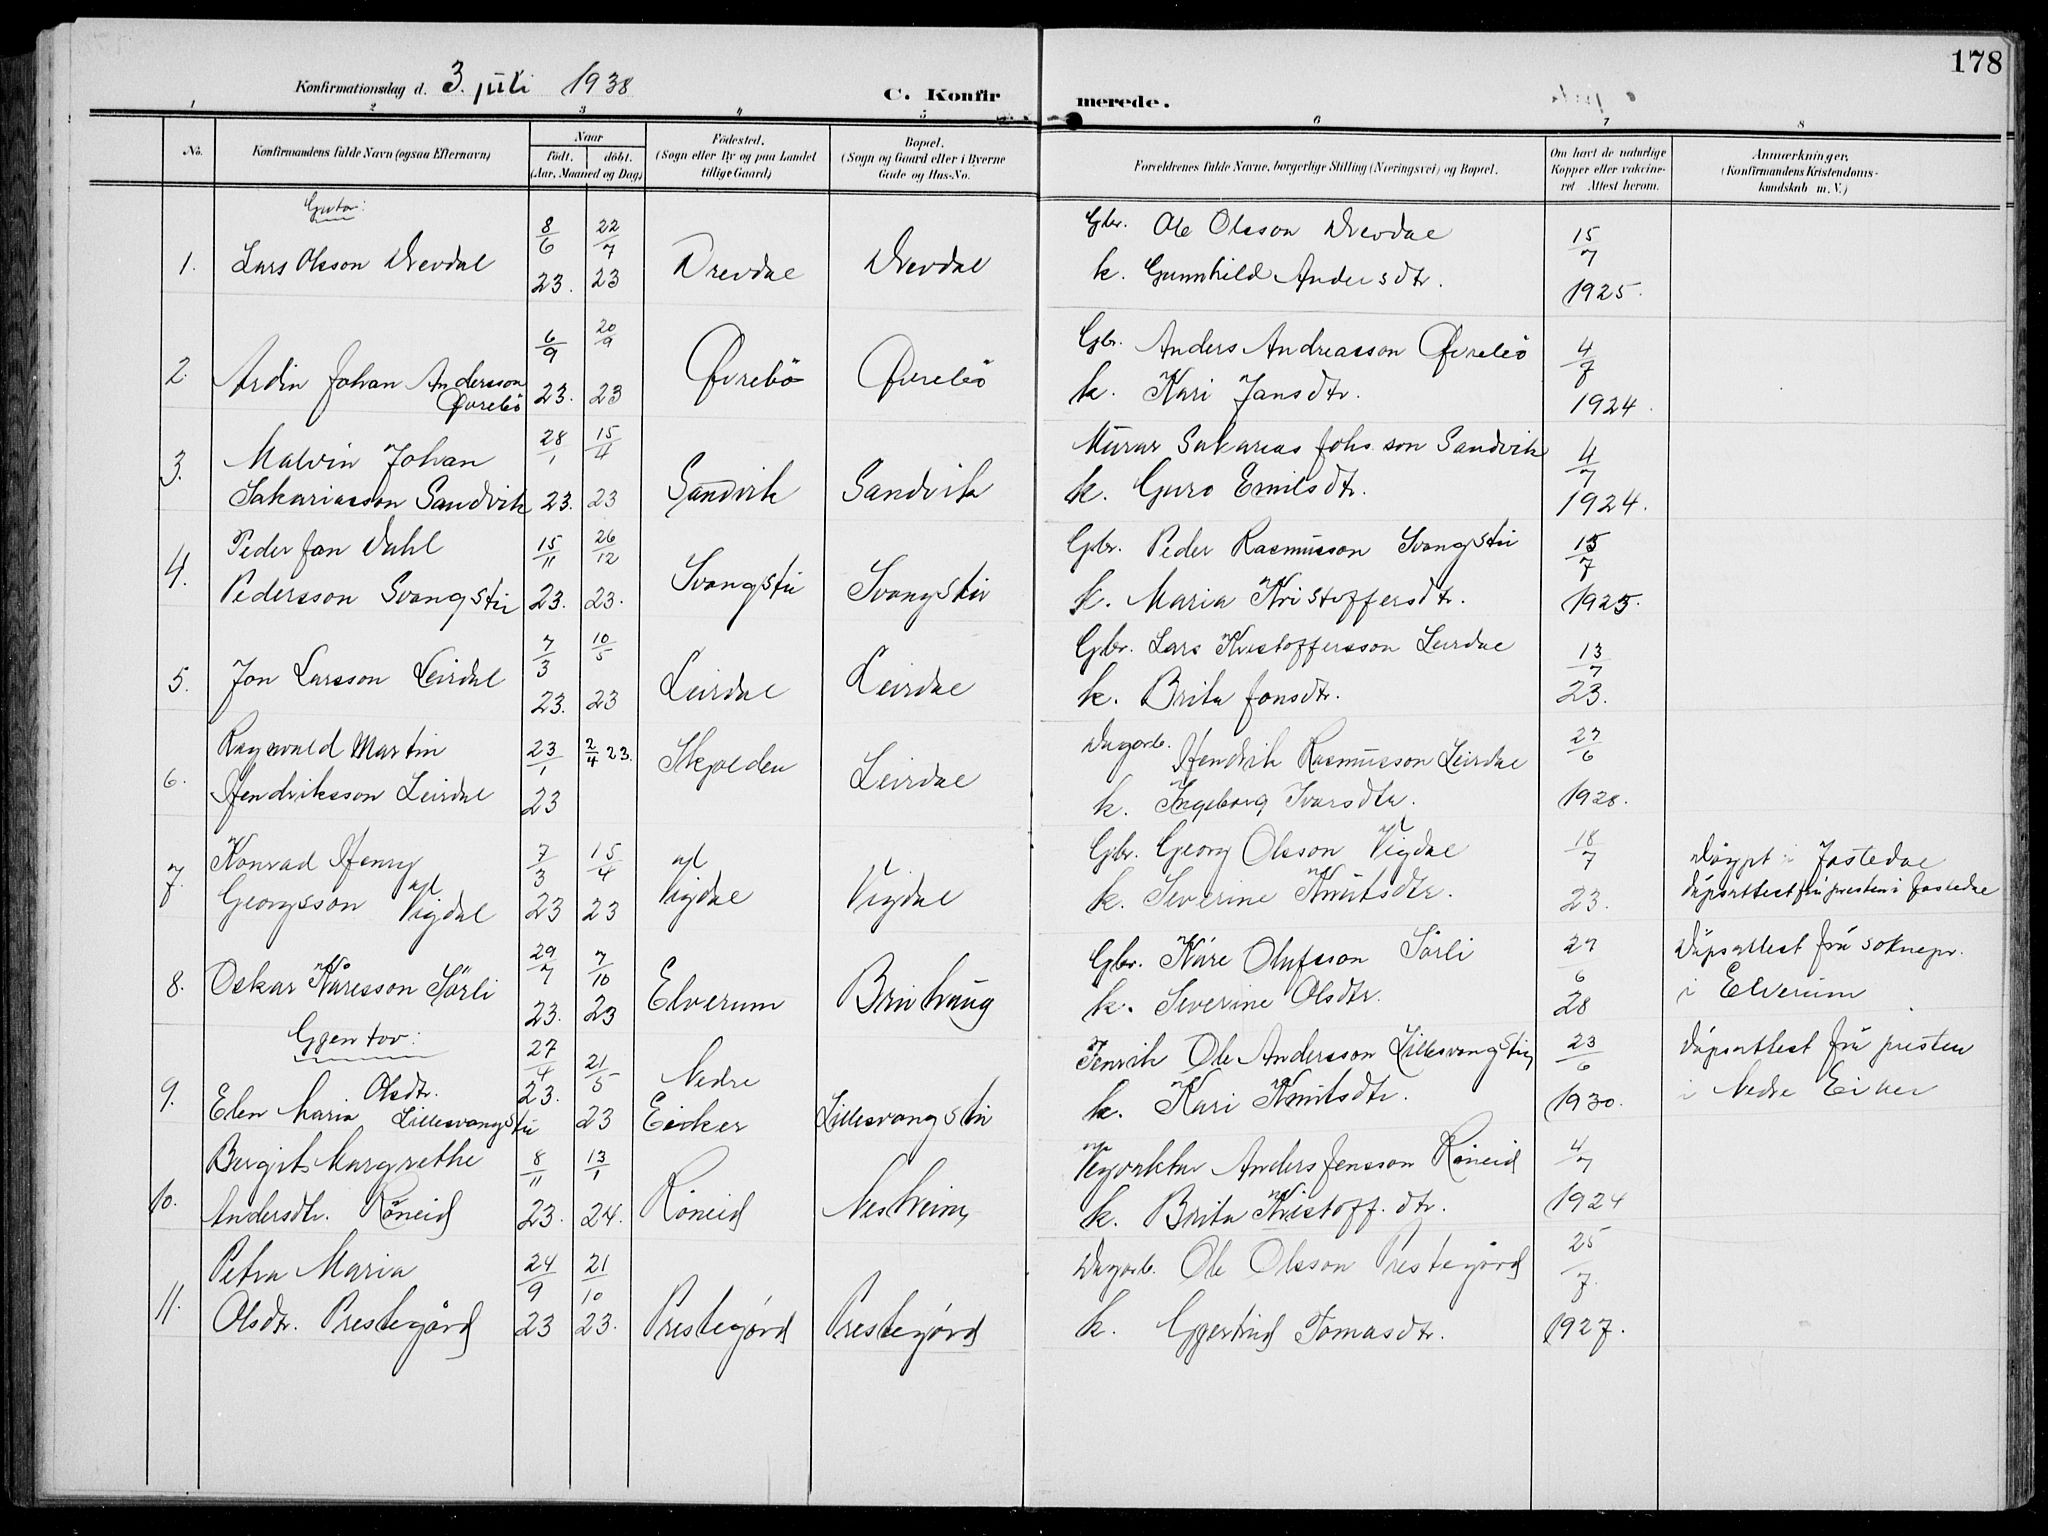 178
Konfirmationsdag d. 3. juli 1938
C. Konfirmerede.
1 2 3 4 5 6 7 8
No.
Konfirmandens fulde Navn (ogsaa Efternavn)
Naar
födt. döbt.
(Aar, Maaned og Dag)
Födested.
(Sogn eller By og paa Landet
tillige Gaard)
Bopæl.
(Sogn og Gaard eller i Byerne
Gade og Hus-No.
Forældrenes fulde Navne, borgerlige Stilling (Næringsvei) og Bopæl.
Om havt de naturlige
Kopper eller vakcine-
ret Attest herom.
Anmærkninger,
(Konfirmandens Kristendoms-
kundskab m. V.)
Gutar:
1. Lars Olsson Drevdal 8/6 23. 22/7 23 Drevdal Drevdal
Gbr. Ole Olsson Drevdal
k. Gunnhild Andersdtr. 15/7 1925.
2. Ardin Johan Andersson
Øvrebö 6/9 23. 20/9 23 Øvrebö Øvrebö
Gbr. Anders Andreasson Øvrebö
k. Kari Jansdtr. 4/7 1924.
3. Malvin Johan
Sakariasson Sandvik 28/1 23. 15/4 23 Sandvik Sandvik
Murar Sakarias Johs.son Sandvik
k. Guro Emilsdtr. 4/7 1924.
4. Peder Jan Dahl
Pedersson Svangstu 15/11 23. 26/12 23. Svangstu Svangstu
Gbr. Peder Rasmusson Svangstu
k. Maria Kristoffersdtr. 15/7 1925.
5. Jon Larsson Leirdal 7/3 23. 10/5 23 Leirdal Leirdal
Gbr. Lars Kristoffersson Leirdal
k. Brita Jonsdtr. 13/7 23.
6. Ragnvald Martin
Hendriksson Leirdal 23/1 23 2/4 23. Skjolden Leirdal
Dagarb. Hendrik Rasmusson Leirdal
k. Ingeborg Ivarsdtr. 27/6 1928.
7. Konrad Henry
Georgsson Vigdal 7/3 23 15/4 23 Vigdal Vigdal
Gbr. Georg Olsson Vigdal
k. Severine Knutsdtr. 18/7 23.
Döypt i Jostedal
Dåpsattest frå presten i Jostedal
8. Oskar Kåresson Sörli 29/7 23. 7/10 23 Elverum Brinhaug
Gbr. Kåre Olufsson Sörli
k. Severine Olsdtr. 27/6 28
Dåpsattest frå soknepr.
i Elverum
Gjentor:
9. Elen Maria Olsdtr.
Lillesvangstu 27/4 23. 21/5 23 Nedre
Eiker Lillesvangstu
Ole Andersson Lillesvangstu
k. Kari Knutsdtr. 23/6 1930.
Dåpsattest frå presten
i Nedre Eiker
10. Bergit Margrethe
Andersdtr. Röneid 8/11 23. 13/1 24. Röneid Nesheim
Vegvaktar Anders Jensson Röneid
k. Brita Kristoff.dtr. 4/7 1924
11. Petra Maria
Olsdtr. Prestegård 24/9 23 21/10 23. Prestegård Prestegård
Dagarb. Ole Olsson Prestegård
k. Gjertrud Tomasdtr. 25/7. 1927.